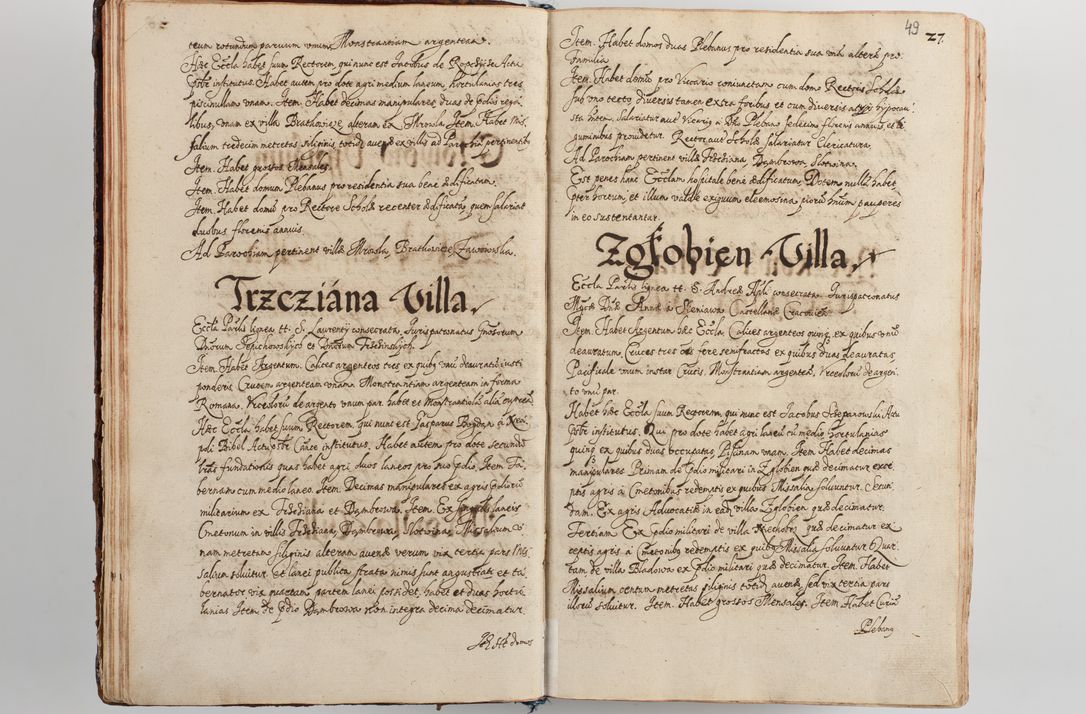 teum rotundum paruum unum, Monstrantiam argenteam.
Hæc Eccla habet suum Rectorem, qui nunc est Jacobus de Ropczice Actu
pbr institutus. Habet autem pro dote agri medium laneum, hortulanias tres
piscinullam unam. Item. Habet decimas manipulares duas de prædijs rega
libus, unam ex villa Bratkowice, alteram ex Mrowla. Item. Habet Mis
salium tredecim metretas siliginis, totidem auenæ ex villis ad Parochia pertinentibus
Item. Habet grossos Mensales.
Item. Habet domum Plebanus pro residentia sua bene ædificatam.
Item. Habet domum pro Rectore Scholæ recenter ædificatam, quem salariat
duobus florenis annuis.
Ad Parochiam pertinent villæ Mrowla, Bratkowice,
Trzcziána Villa.
Eccla Parlis lignea tt. S. Laurentij consecrata, Jurispatronatus Gnosorum
Dnorum
Item Habet Argentum. Calices argenteos tres ex quibus unum deauratum iusti
ponderis Crucem argenteam unam. Monstrantiam argenteam in forma
Romana. Urceolorum de argento unum par habet et Monstrantiolam aliam
Hæc Eccla habet suum Rectorem, qui nunc est Gasparus Bogdan à
Actu pbr institutus. Habet autem pro dote secundum
lras fundationis quas habet agri duos laneos pro suo prædio. Item Ta
bernam cum medio laneo. Item. Decimas manipulares ex agris prædiorum
militarium ex Trzciana et Dambrowa. Item. Ex singulis laneis
Cmetonum in villis Trzciana, Dambrowa, Slotwina, Missalium u
nam metretam siliginis alteram auenæ verum vix tertia pars Mis
salium soluitur, et lanei publica strata nimis sunt angustati et ta
bernator vix quartam partem lanei possidet, habet et duas hortu
lanias Item de prædio Dambrowa non integra decima decimatur.
Item Habet domos
49 27.
Item. Habet domos duas Plebanus pro residentia sua unam alteram pro
Familia
Item. Habet domum pro Vicario coniunctam cum domo Rectoris Scholæ
sub uno tecto diversis tamen extra foribus et cum diversis hypocau
stis intra. Salariatur aut Vicarius a Dno Plebano sedecim florenis annuis, et le
guminibus prouidetur. Rector aut Scholæ salariatur Clericatura.
Ad Parochiam pertinent villæ Trzciana, Dambrowa, Slotwina.
Est penes hanc Ecclam hospitale bene ædificatum, Dotem nullam habet
præter hortum, et illum valde exiguum eleemosina piorum hominum pauperes
in eo sustentantur.
Zgłobien Villa.
Eccla Parlis lignea tt. S. Andreæ Apli consecrata. Jurispatronatus
Mgcæ Dnæ Annæ à Sieniawa Castellanæ
Item. Habet Argentum hæc Eccla, Calices argenteos quinque, ex quibus unum
deauratum, Cruces tres fere semifractas ex quibus duas deauratas,
Pacificale unum instar Crucis. Monstrantiam argenteam, Urceolorum de argen
to unum par.
Habet hæc Eccla suum Rectorem, qui nunc est Jacobus Sczepanowski Actu
pbr institutus. Qui pro dote habet agri laneum cum medio hortulanias
quinque ex quibus duas occupatas, Piscinam unam. Item. Habet decimas
manipulares Primam de prædio militari in Zglobien quæ decimatur exce
ptis agris à Cmetonibus redemptis ex quibus Missalia soluuntur. Secun
dam. Ex agris Advocatiæ in eadem villa Zglobien quæ decimatur.
Tertiam. Ex prædio militari de villa quæ decimatur ex
ceptis agris à Cmetonibus redemptis ex quibus Missalia soluuntur. Quar
tam de villa Bladowa ex prædio militari quæ decimatur. Item. Habet
Missalium centum metretas siliginis totidem auenæ, sed vix tertia pars
illorum soluitur. Item. Habet grossos Mensales. Item Habet Curiam
Plebanus